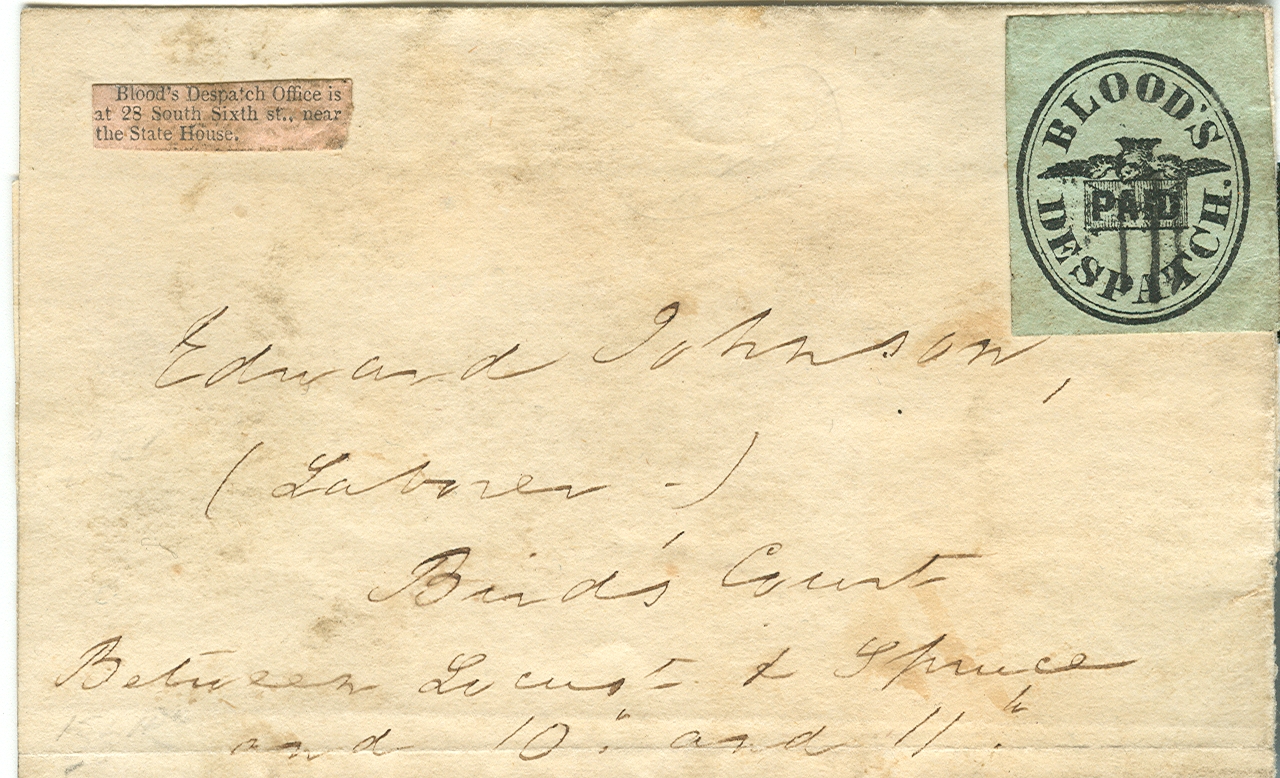 Blood's Despatch Office is
at 28 South Sixth st., near
the State House.
BLOOD'S
PAID
DESPATCH.
Edward Johnson,
(Laborer -)
Bird's Court
Between Locust & Spruce
and 10" and 11th